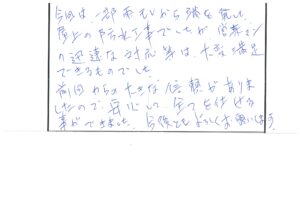 今回は、一部雨もれから端を発し、
屋上の防水工事でしたが、営業マン
の迅速な対応等は、大変満足
できるものでした。
前回からの大きな信頼がありま
したので、安心して、全てを任せる
事ができました。今後ともよろしくお願いします。